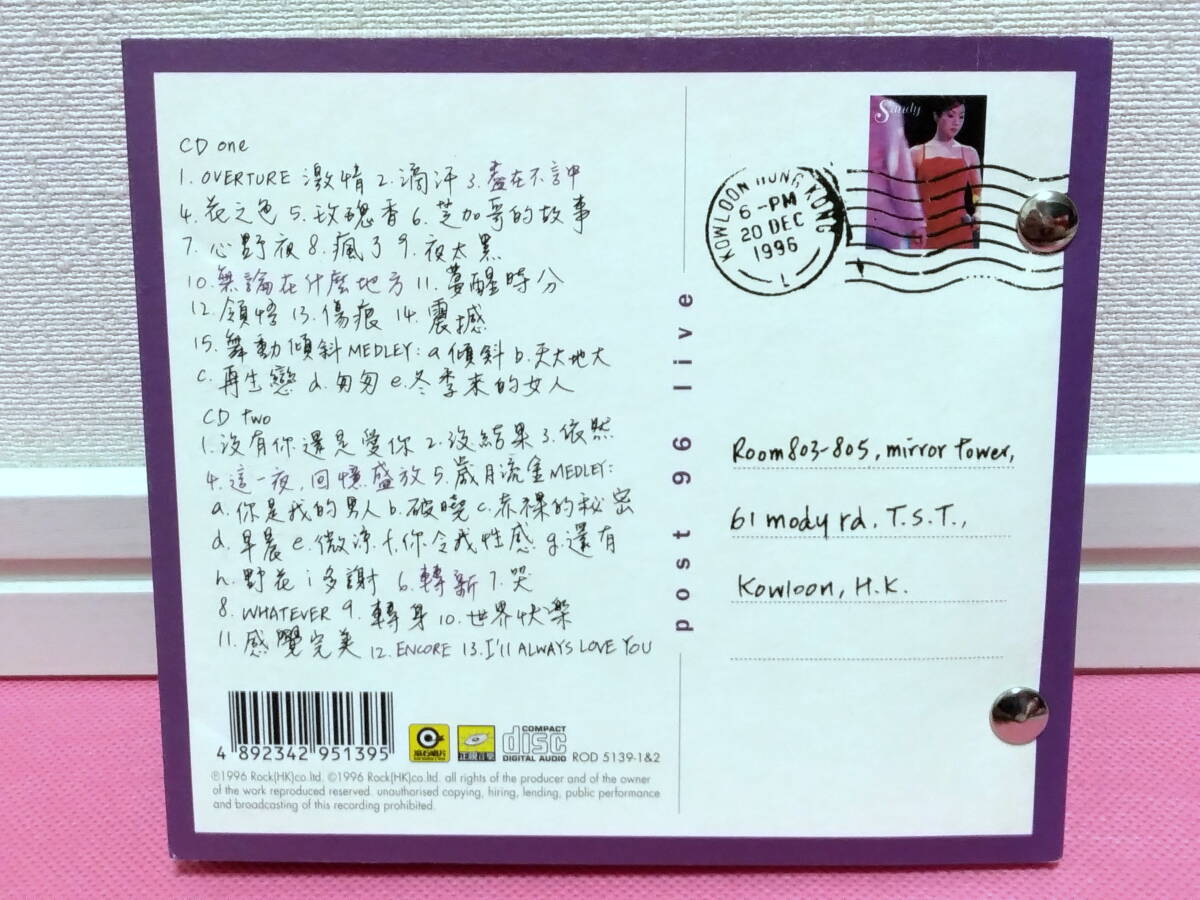 CD one
1. OVERTURE 激情 2. 滴汗 3. 盡在不言中
4. 花之色 5. 玫瑰香 6. 芝加哥的故事
7. 心野夜 8. 瘋了 9. 夜太黑
10. 無論在什麼地方 11. 夢醒時分
12. 領悟 13. 傷痕 14. 震撼
15. 舞動傾斜 MEDLEY: a 傾斜 b. 天大地大
c. 再生戀 d. 匆匆 e. 冬季來的女人
CD two
1. 沒有你還是愛你 2. 沒結果 3. 依然
4. 這一夜, 回憶盛放 5. 歲月流金 MEDLEY:
a. 你是我的男人 b. 破曉 c. 赤裸的秘密
d. 早晨 e. 微涼 f. 你令我性感 g. 還有
h. 野花 i 多謝 6. 轉新 7. 哭
8. WHATEVER 9. 轉身 10. 世界快樂
11. 感覺完美 12. ENCORE 13. I'll ALWAYS LOVE YOU
4 892342 951395
滾石唱片
正版音樂
COMPACT
disc
DIGITAL AUDIO
ROD 5139-1&2
℗1996 Rock(HK)co.ltd. ©1996 Rock(HK)co.ltd. all rights of the producer and of the owner
of the work reproduced reserved. unauthorised copying, hiring, lending, public performance
and broadcasting of this recording prohibited.
post 96 live
Sandy
KOWLOON HONG KONG
6-PM
20 DEC
1996
L
Room 803-805, mirror tower,
61 mody rd. T.S.T.,
Kowloon, H.K.